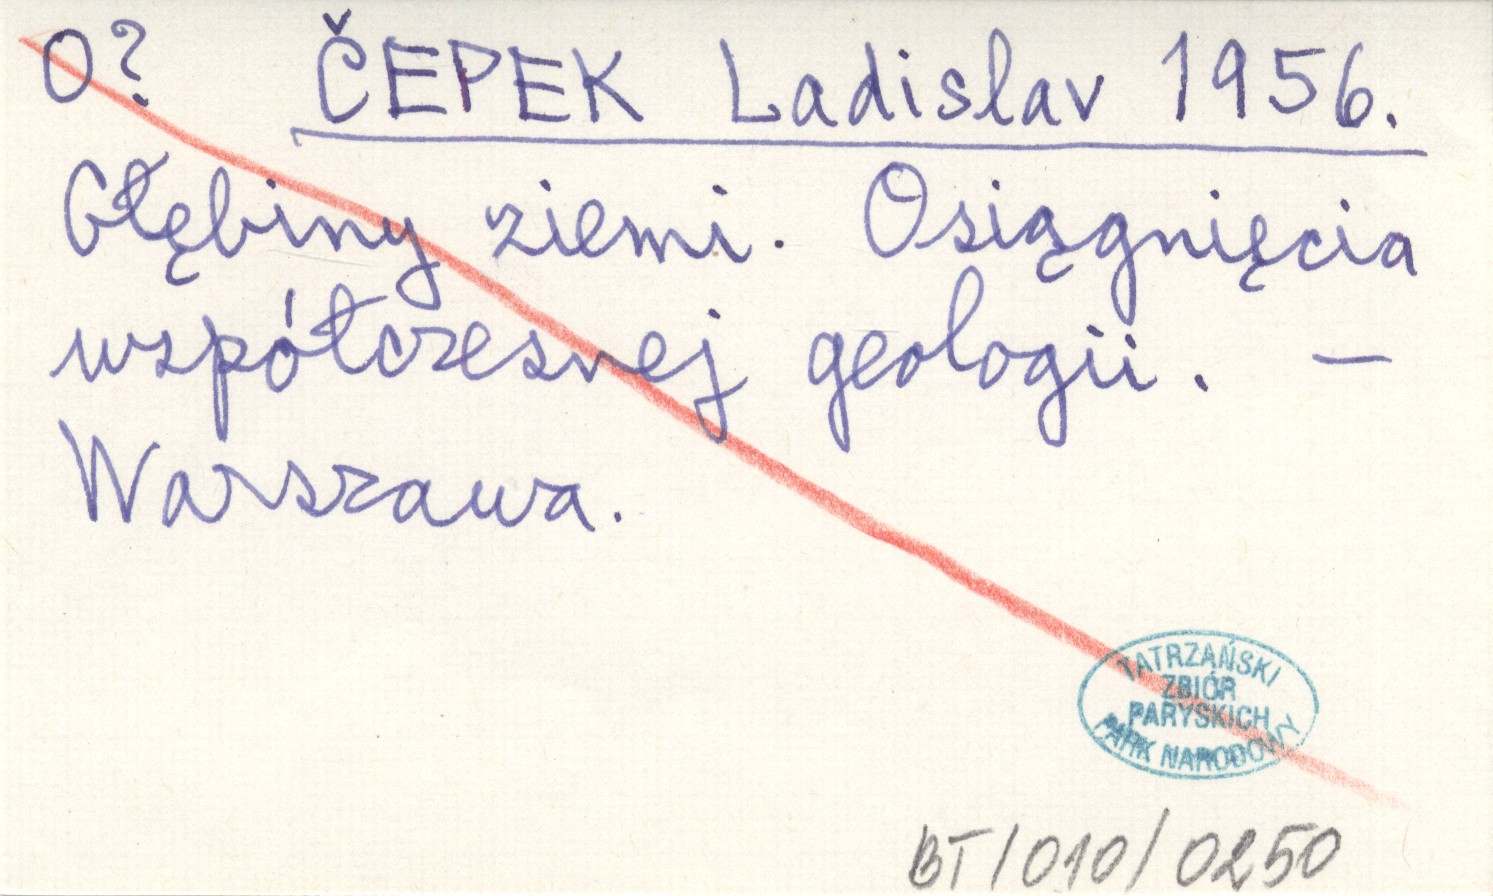 O? ČEPEK Ladislav 1956.
Głębiny ziemi. Osiągnięcia
współczesnej geologii. —
Warszawa.
TATRZAŃSKI
ZBIÓR
PARYSKICH
PARK NARODOWY
BT/010/0250